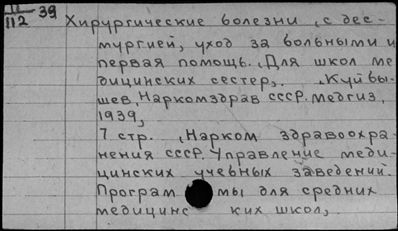 11/112 39 Хирургические болезни, с дес-
мургией, уход за больными и
первая помощь. Для школ ме
дицинских сестер,. Куйбы-
шев, Наркомздрав СССР. Медгиз,
1939,
7 стр. (Нарком здравоохра-
нения СССР. Управление меди-
цинских учебных заведений.
Програм мы для средних
медицинс ких школ,